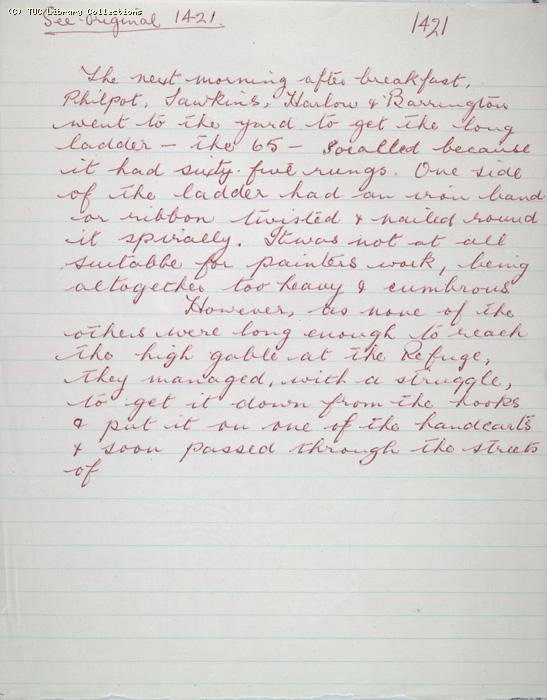 (C) TUC Library Collections
See Original 1421.
1421
The next morning after breakfast,
Philpot, Sawkins, Harlow & Barrington
went to the yard to get the long
ladder – the 65 – so called because
it had sixty-five rungs. One side
of the ladder had an iron band
or ribbon twisted & nailed round
it spirally. It was not at all
suitabbe for painters work, being
altogether too heavy & cumbrous
However, as none of the
others were long enough to reach
the high gable at the Refuge,
they managed, with a struggle,
to get it down from the hooks
& put it on one of the handcarts
& soon passed through the streets
of